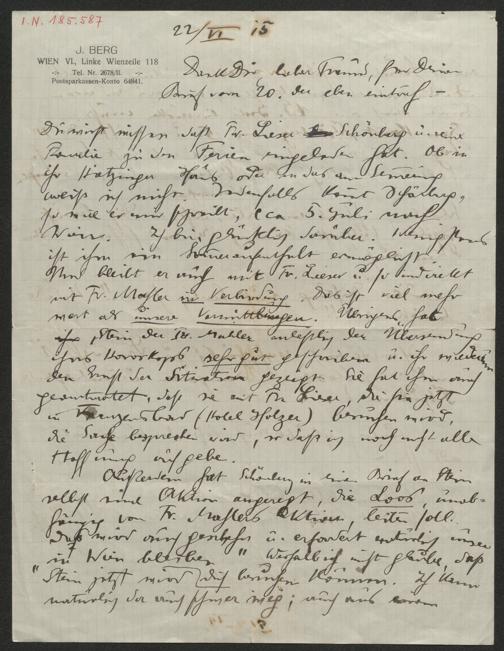 I.N. 185.587
22/VI 15
J. BERG
WIEN VI., Linke Wienzeile 118
-:- Tel. Nr. 2678/II. -:-
Postsparkassen-Konto 64841.
Dank Dir, lieber Freund, für Deinen
Brief vom 20. der eben eintraf. —
Du wirst wissen daß Fr. Lieser Schönberg u. seine
Familie zu den Ferien eingeladen hat. Ob in
ihr Hietzinger Haus oder in das am Semmering
weiß ich nicht. Jedenfalls kommt Schönberg,
so wie er mir schreibt, ca 5. Juli nach
Wien. Ich bin glücklich darüber. Wenigstens
ist ihm ein Sommeraufenthalt ermöglicht.
Und bleibt er auch mit Fr. Lieser u. so indirekt
mit Fr. Mahler in Verbindung. Das ist viel mehr
wert als unsere Vermittlungen. Übrigens hat
Stein der Fr. Mahler anläßlich der Übersendung
ihres Horoskops sehr gut geschrieben u. ihr wiederum
den Ernst der Situation gezeigt. Sie hat ihm auch
geantwortet, daß sie mit Fr. Lieser, die sie jetzt
in Franzensbad (Hotel Holzer) besuchen wird,
die Sache besprechen wird, so daß ich noch nicht alle
Hoffnung aufgebe.
Außerdem hat Schönberg in einem Brief an Stein
selbst eine Aktion angeregt, die Loos unab-
hängig von Fr. Mahlers Aktion, leiten soll.
Das wird auch geschehn u. erfordert natürlich unser
in Wien bleiben. Weshalb ich nicht glaube, daß
Stein jetzt wird Dich besuchen können. Ich kann
natürlich da auch schwer weg; auch aus